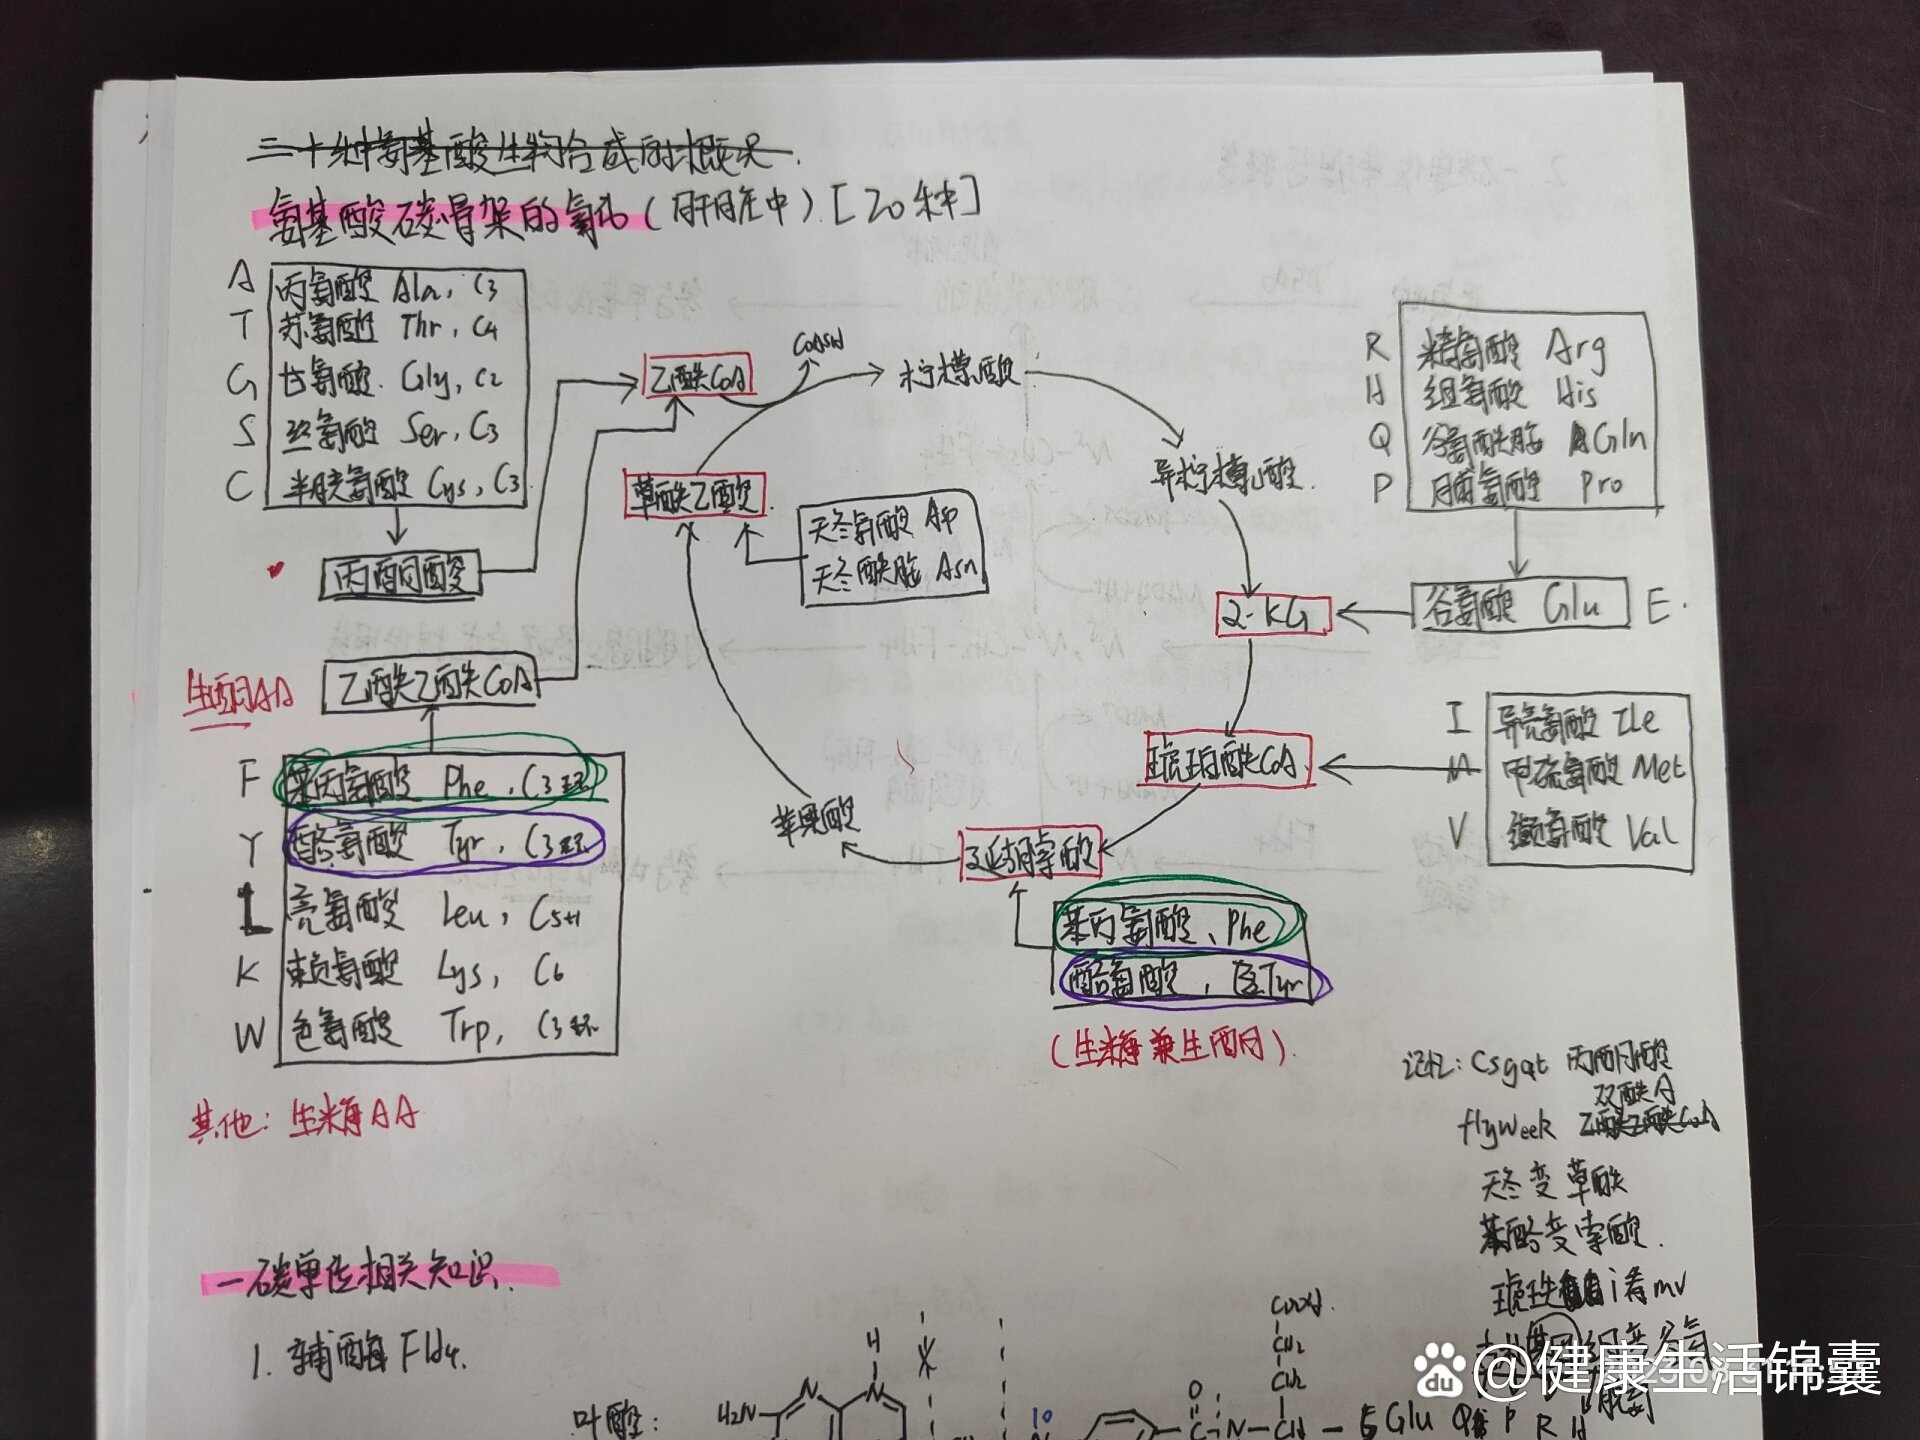 二十种氨基酸生物合成的概况.
氨基酸碳骨架的氧化(肝脏中).[20种]
A 丙氨酸 Ala, C3
T 苏氨酸 Thr, C4
G 甘氨酸. Gly, C2
S 丝氨酸 Ser, C3
C 半胱氨酸 Cys, C3.
丙酮酸
乙酰CoA
CoASH
柠檬酸
异柠檬酸.
草酰乙酸.
天冬氨酸 Asp
天冬酰胺 Asn
R 精氨酸 Arg
H 组氨酸 His
Q 谷氨酰胺 Gln
P 脯氨酸 Pro
2-KG
谷氨酸 Glu E.
生酮AA
乙酰乙酰CoA
F 苯丙氨酸 Phe, C3环
Y 酪氨酸 Tyr, C3环
L 亮氨酸 Leu, C5+1
K 赖氨酸 Lys, C6
W 色氨酸 Trp, C3环
I 异亮氨酸 Ile
M 甲硫氨酸 Met
V 缬氨酸 Val
琥珀酰CoA.
延胡索酸
苹果酸
苯丙氨酸、Phe
酪氨酸, Tyr
(生糖兼生酮).
其他: 生糖AA
记忆: Csgat 丙酮酸
双酰A
flyweek 乙酰乙酰CoA
天冬变草酰
苯酪变索酸.
i看mv
一碳单位相关知识.
1. 辅酶 FH4.
叶酸:
H2N
N
H
N
10
O
C
N
CH
CH2
CH2
COOH.
Glu Q P R H
@健康生活锦囊